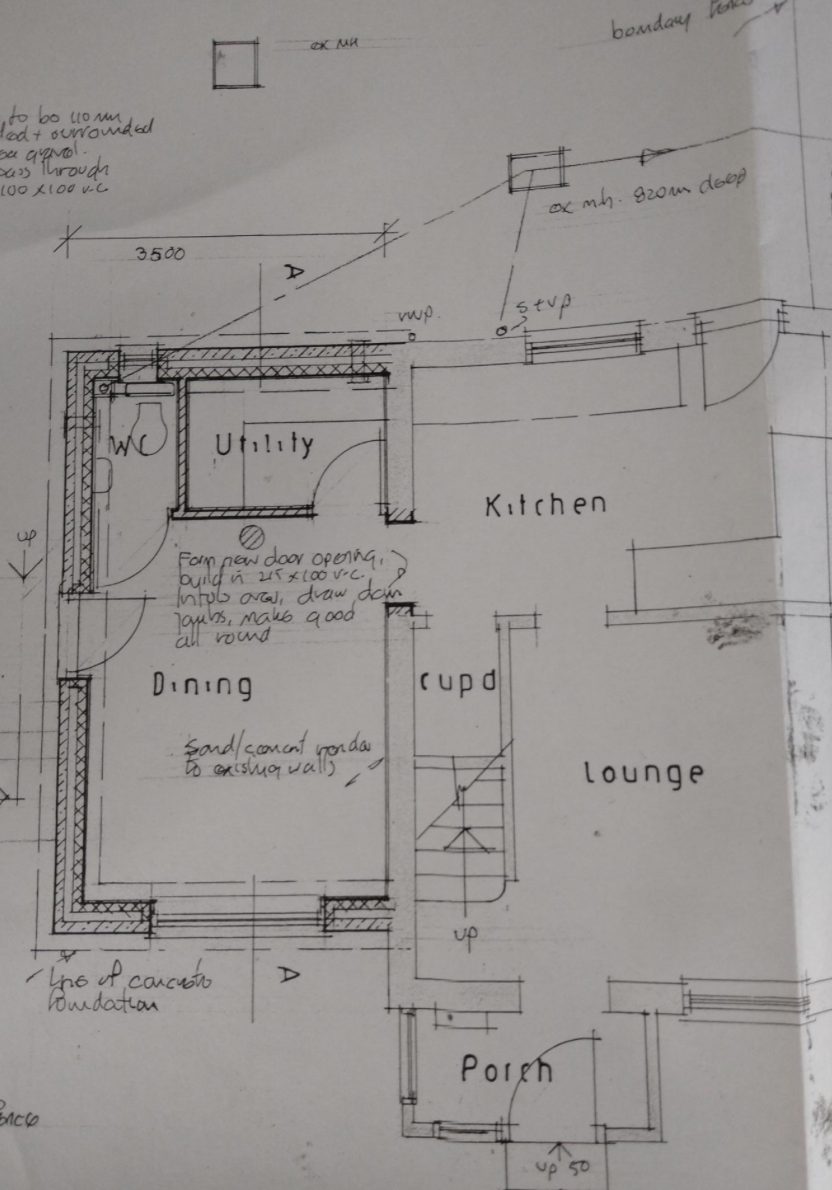 bonday
ex MH
to be 110mm
+ surrounded
pea gravel.
pass through
100 x 100 v.c.
ex mh. 820mm deep
3500
A
rwp.
s+vp
WC
Utility
Kitchen
up
Form new door opening,
build in 215 x 100 v.c.
lintols over, draw down
jambs, make good
all round
Dining
cupd
Sand/cement render
to existing walls
lounge
up
A
line of concrete
foundation
Porch
up 50